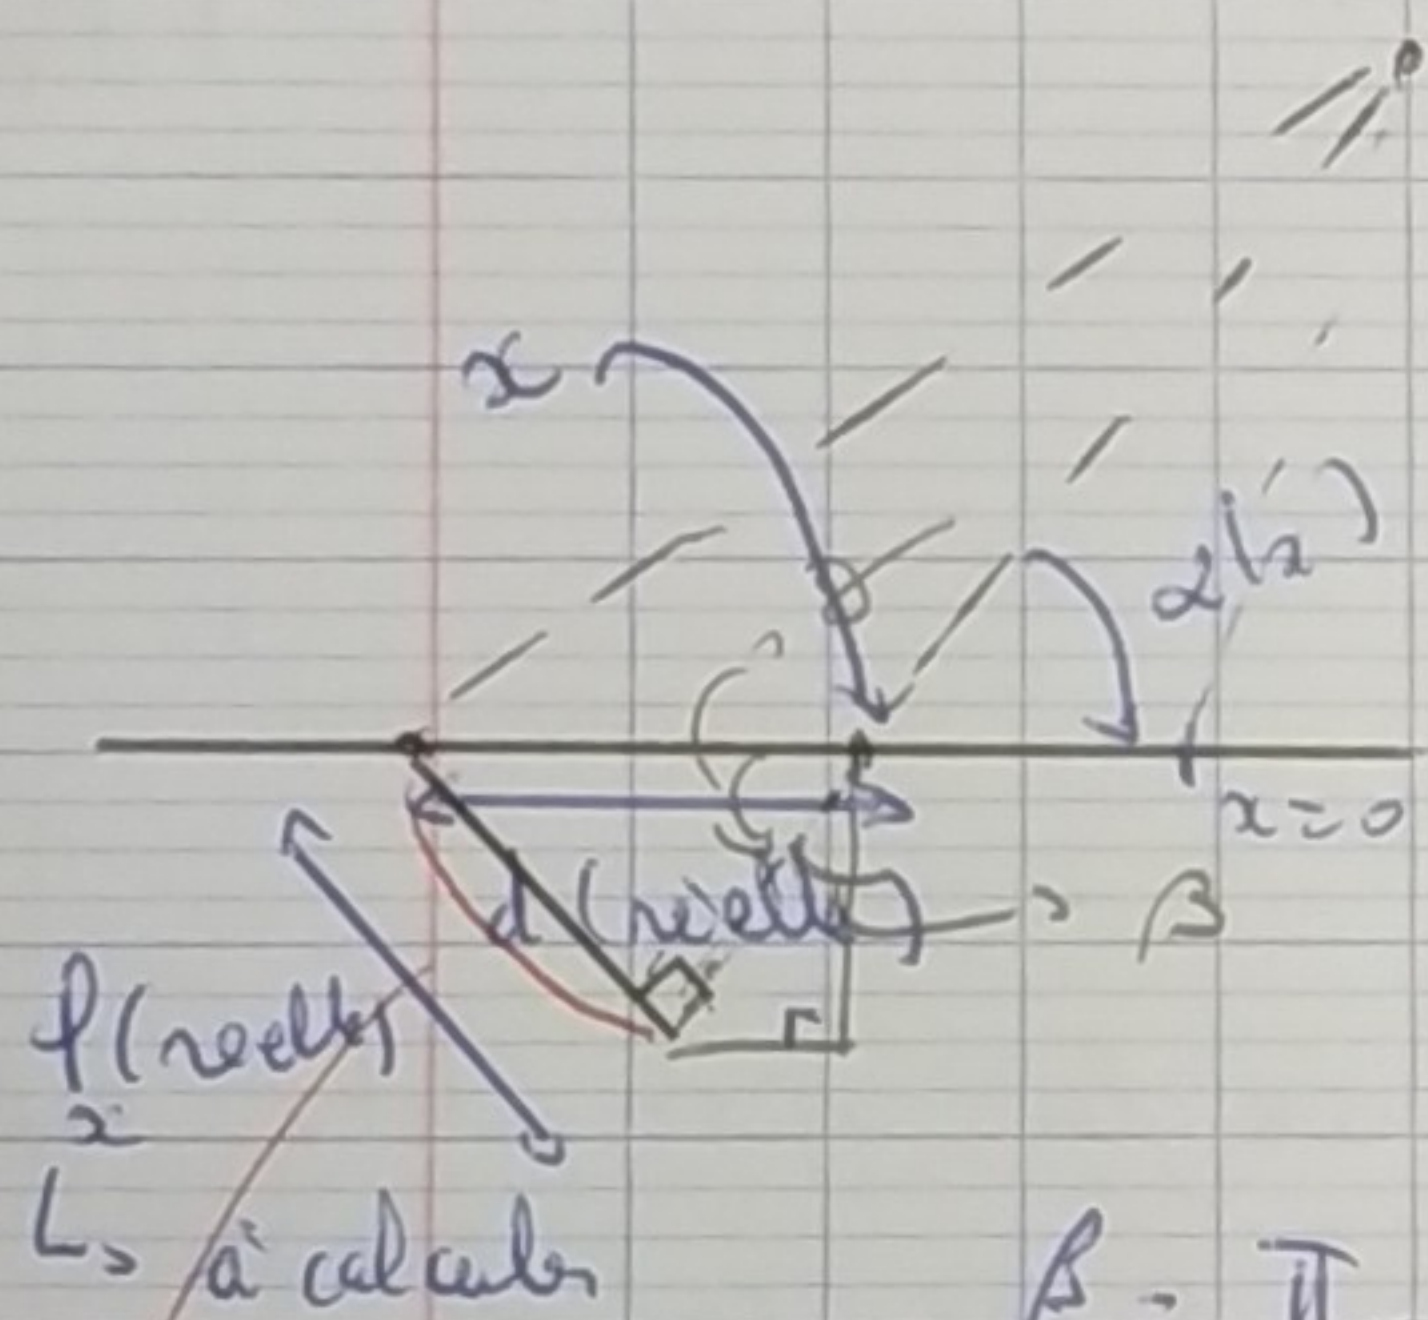 x
α(x)
x = 0
d (réelle)
β
l (réelle)
x
L> à calculer
β = π